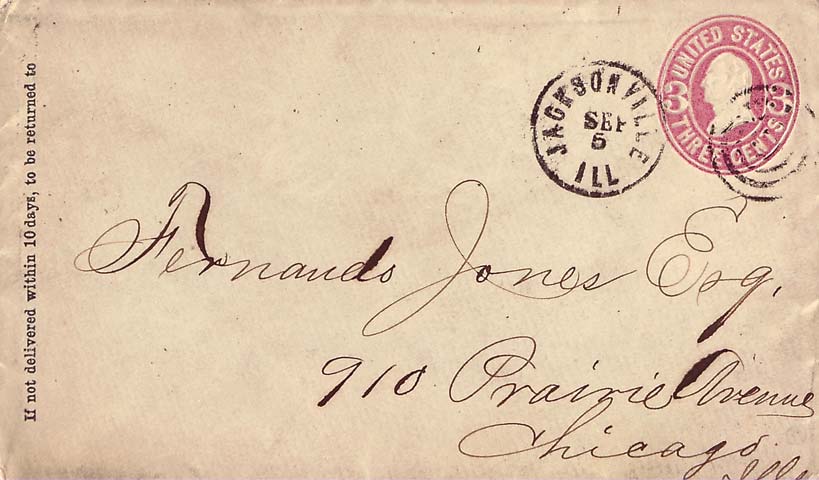 If not delivered within 10 days, to be returned to
JACKSONVILLE
SEP
5
ILL
UNITED STATES
3 3
THREE CENTS
Fernando Jones Esq.
910 Prairie Avenue
Chicago
Ills